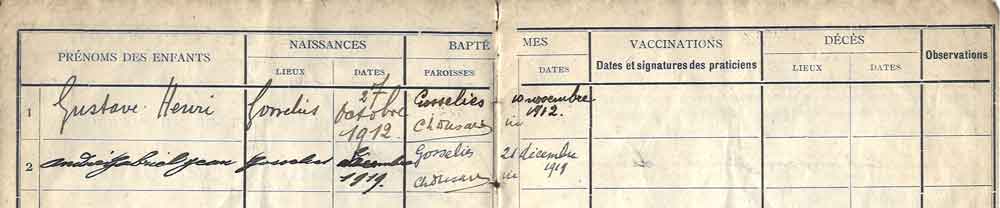 PRÉNOMS DES ENFANTS NAISSANCES BAPTÊMES VACCINATIONS DÉCÈS Observations
LIEUX DATES PAROISSES DATES Dates et signatures des praticiens LIEUX DATES
1 Gustave Henri Gosselies 27 Octobre 1912 Gosselies 10 novembre 1912.
2 André Gabriel Jean Gosselies Décembre 1919. Gosselies 21 décembre 1919